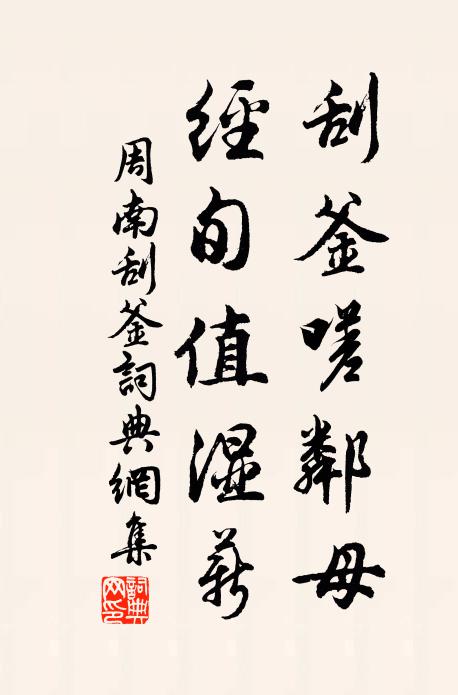 刮釜嗟鄰母
經旬值濕薪
周南刮釜詞典網集
詞典網印